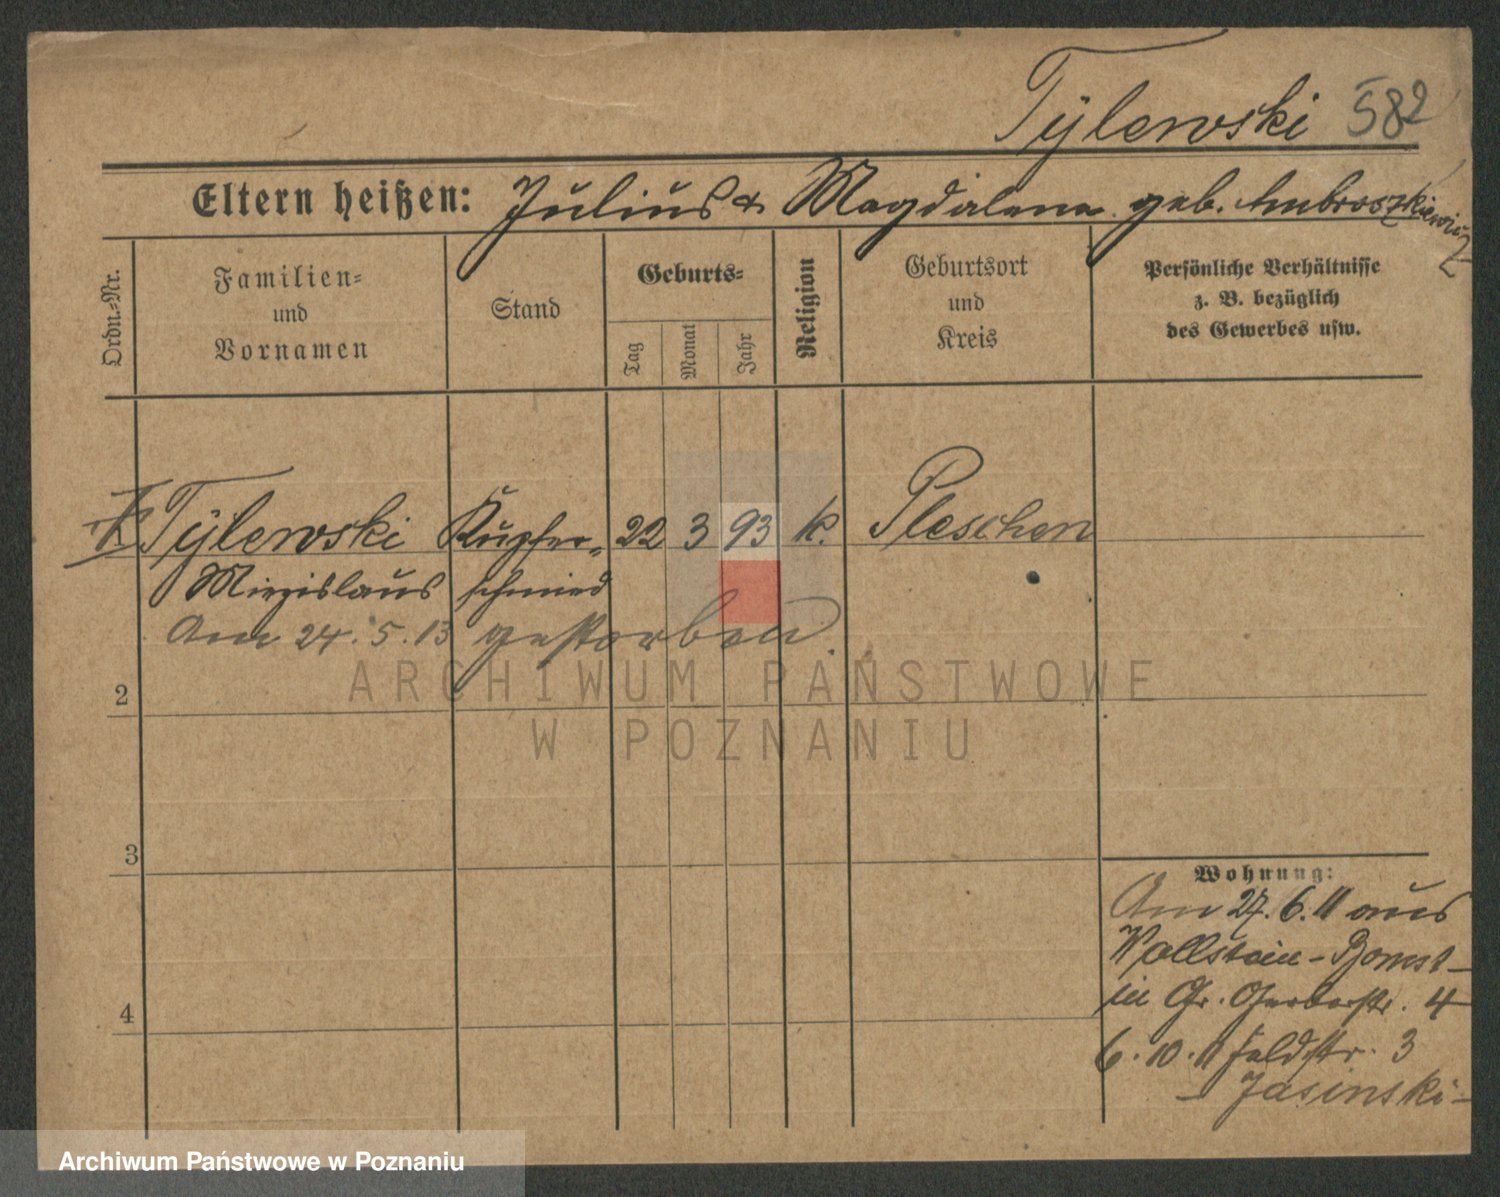 Tylewski 582
Eltern heißen: Julius & Magdalena geb. Ambroszkiewicz
Ordn.-Nr.
Familien-
und
Vornamen
Stand
Geburts-
Tag
Monat
Jahr
Religion
Geburtsort
und
Kreis
Persönliche Verhältnisse
z. B. bezüglich
des Gewerbes usw.
Tylewski Kupfer- 22 3 93 k. Pleschen
Miezislaus schmied
Am 24.5.13 gestorben.
2
3
4
Wohnung:
Am 27.6.11 aus
Wollstein-Bomst-
in Gr. Gerberstr. 4
6.10.11 Feldstr. 3
- Jasinski -
ARCHIWUM PAŃSTWOWE
W POZNANIU
Archiwum Państwowe w Poznaniu